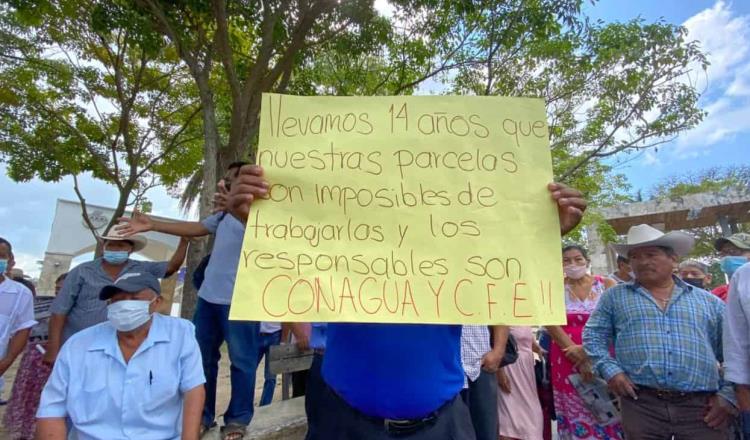 llevamos 14 años que
nuestras parcelas
son imposibles de
trabajarlas y los
responsables son
CONAGUA Y C.F.E!!